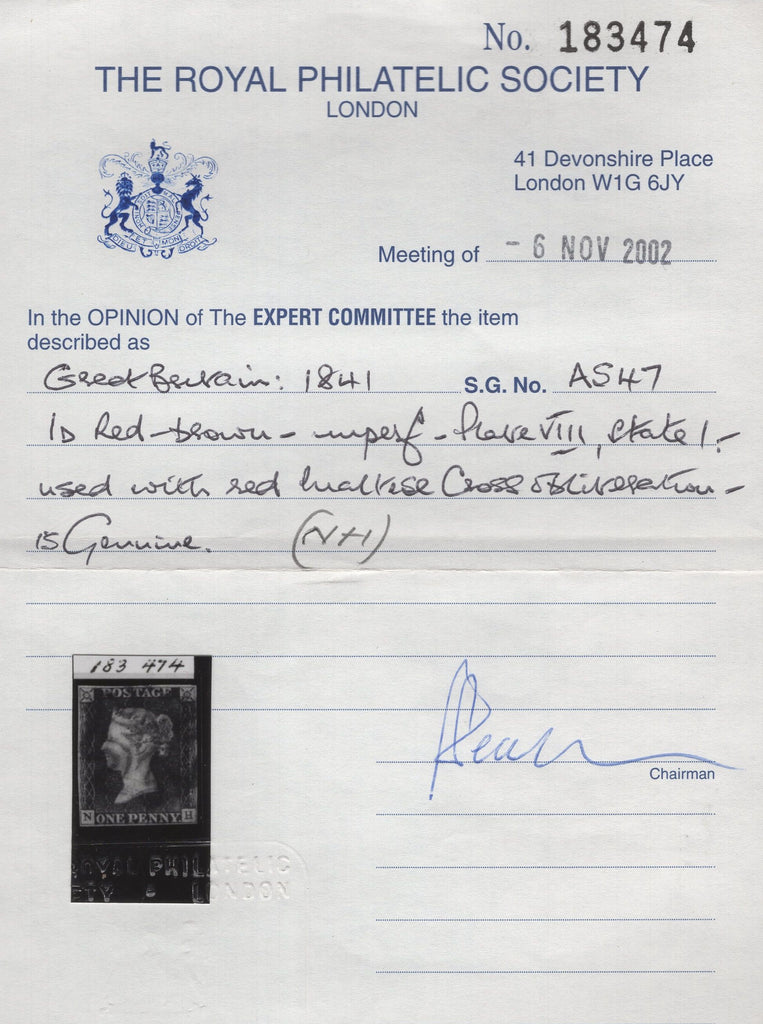 No. 183474
THE ROYAL PHILATELIC SOCIETY
LONDON
41 Devonshire Place
London W1G 6JY
DIEU ET MON DROIT
Meeting of - 6 NOV 2002
In the OPINION of The EXPERT COMMITTEE the item
described as
Great Britain: 1841 S.G. No. AS47
1D Red-brown - imperf - Plate VIII, State 1 -
used with red Maltese Cross obliteration -
is Genuine. (NH)
183 474
POSTAGE
N ONE PENNY. H
Chairman
ROYAL PHILATELIC
TY & LONDON